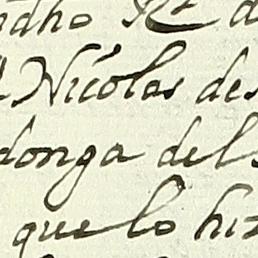 dho Rl d
Nicolas des
donga del
que lo hiz